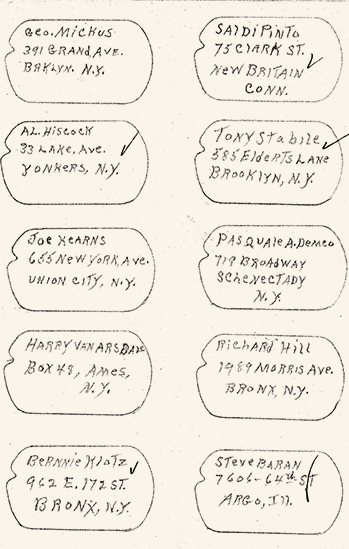 Geo. Mickus
391 Grand Ave.
Brklyn. N.Y.
Sal DiPinto
75 Clark St.
New Britain
Conn.
Al. Hiscock
33 Lake, Ave.
Yonkers, N.Y.
Tony Stabile
585 Elderts Lane
Brooklyn, N.Y.
Joe Kearns
655 New York, Ave.
Union City, N.Y.
Pasquale A. Demeo
719 Broadway
Schenectady
N.Y.
Harry Van Arsdale
Box 48, Ames,
N.Y.
Richard Hill
1989 Morris Ave.
Bronx, N.Y.
Bernnie Klotz
962 E. 172 St.
Bronx, N.Y.
Steve Baran
7606-64th St
Argo, Ill.